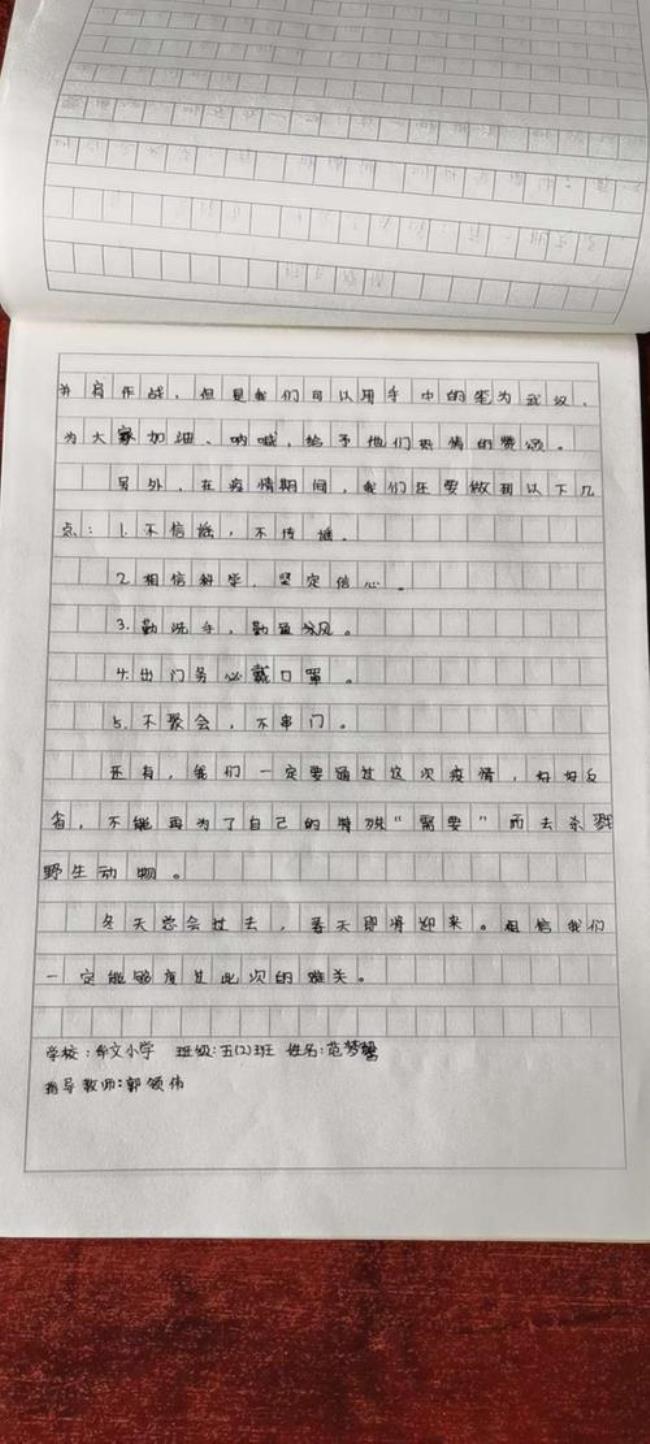 并肩作战，但是我们可以用手中的笔为武汉、
为大家加油、呐喊，给予他们热情的赞颂。
另外，在疫情期间，我们还要做到以下几
点：1.不信谣，不传谣。
2.相信科学，坚定信心。
3.勤洗手，勤通风。
4.出门务必戴口罩。
5.不聚会，不串门。
还有，我们一定要通过这次疫情，好好反
省，不能再为了自己的特殊“需要”而去杀戮
野生动物。
冬天总会过去，春天即将迎来。相信我们
一定能够度过此次的难关。
学校：华文小学 班级：五(2)班 姓名：范梦
指导教师：郭领伟